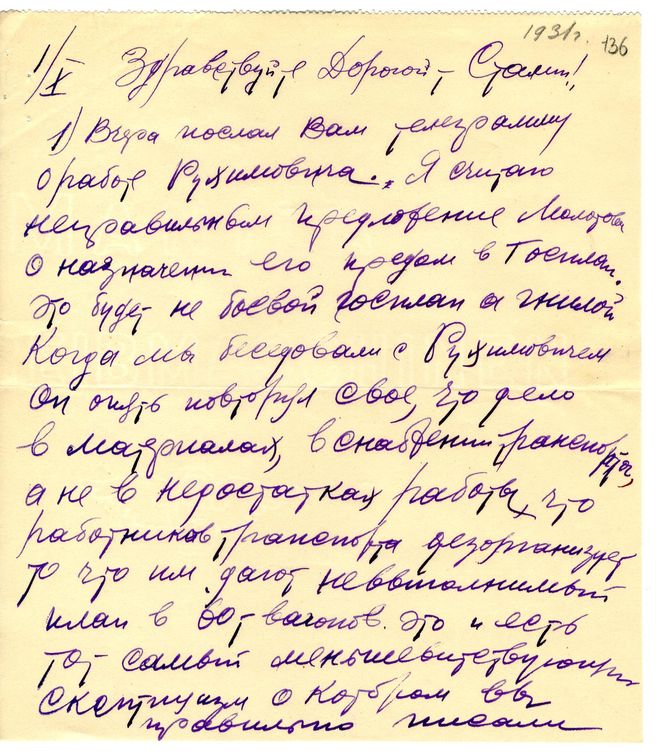 1931г. 136
1/X Здравствуйте Дорогой т Сталин!
1) Вчера послал Вам телеграмму
о работе Рухимовича. Я считаю
неправильным предложение Молотова
о назначении его предом в Госплан.
Это будет не боевой госплан а гнилой
Когда мы беседовали с Рухимовичем
Он опять повторил свое, что дело
в материалах, в снабжении транспорта,
а не в недостатках работы, что
работников транспорта дезорганизует
то что им дают невыполнимый
план в 60 т вагонов. Это и есть
тот самый меньшевиствующий
скептицизм о котором вы
правильно писали